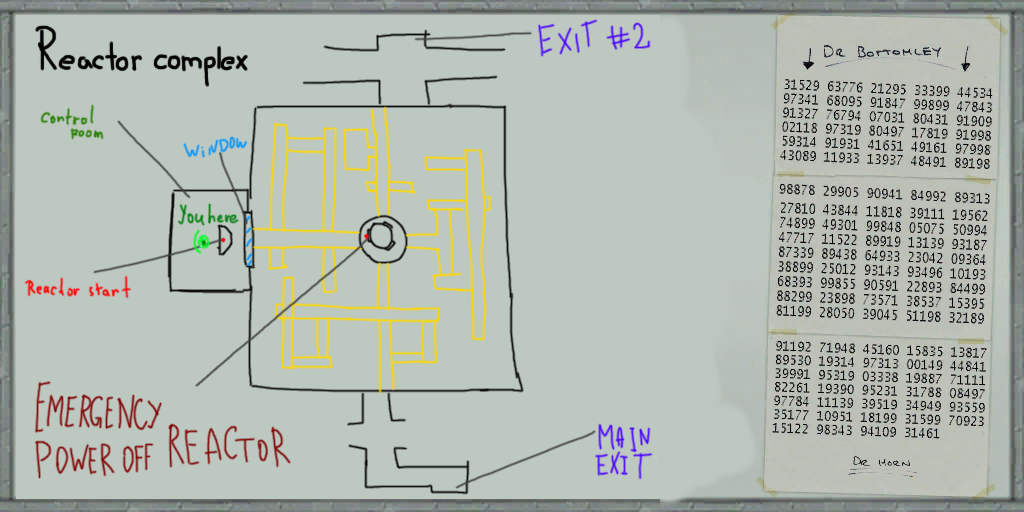 Reactor complex
EXIT #2
Control
room
WINDOW
You here
Reactor start
EMERGENCY
POWER OFF REACTOR
MAIN
EXIT
DR BOTTOMLEY
31529 63776 21295 33399 44534
97341 68095 91847 99899 47843
91327 76794 07031 80431 91909
02118 97319 80497 17819 91998
59314 91931 41651 49161 97998
43089 11933 13937 48491 89198
98878 29905 90941 84992 89313
27810 43844 11818 39111 19562
74899 49301 99848 05075 50994
47717 11522 89919 13139 93187
87339 89438 64933 23042 09364
38899 25012 93143 93496 10193
68393 99855 90591 22893 84499
88299 23898 73571 38537 15395
81199 28050 39045 51198 32189
91192 71948 45160 15835 13817
89530 19314 97313 00149 44841
39991 95319 03338 19887 71111
82261 19390 95231 31788 08497
97784 11139 39519 34949 93559
35177 10951 18199 31599 70923
15122 98343 94109 31461
DR HORN